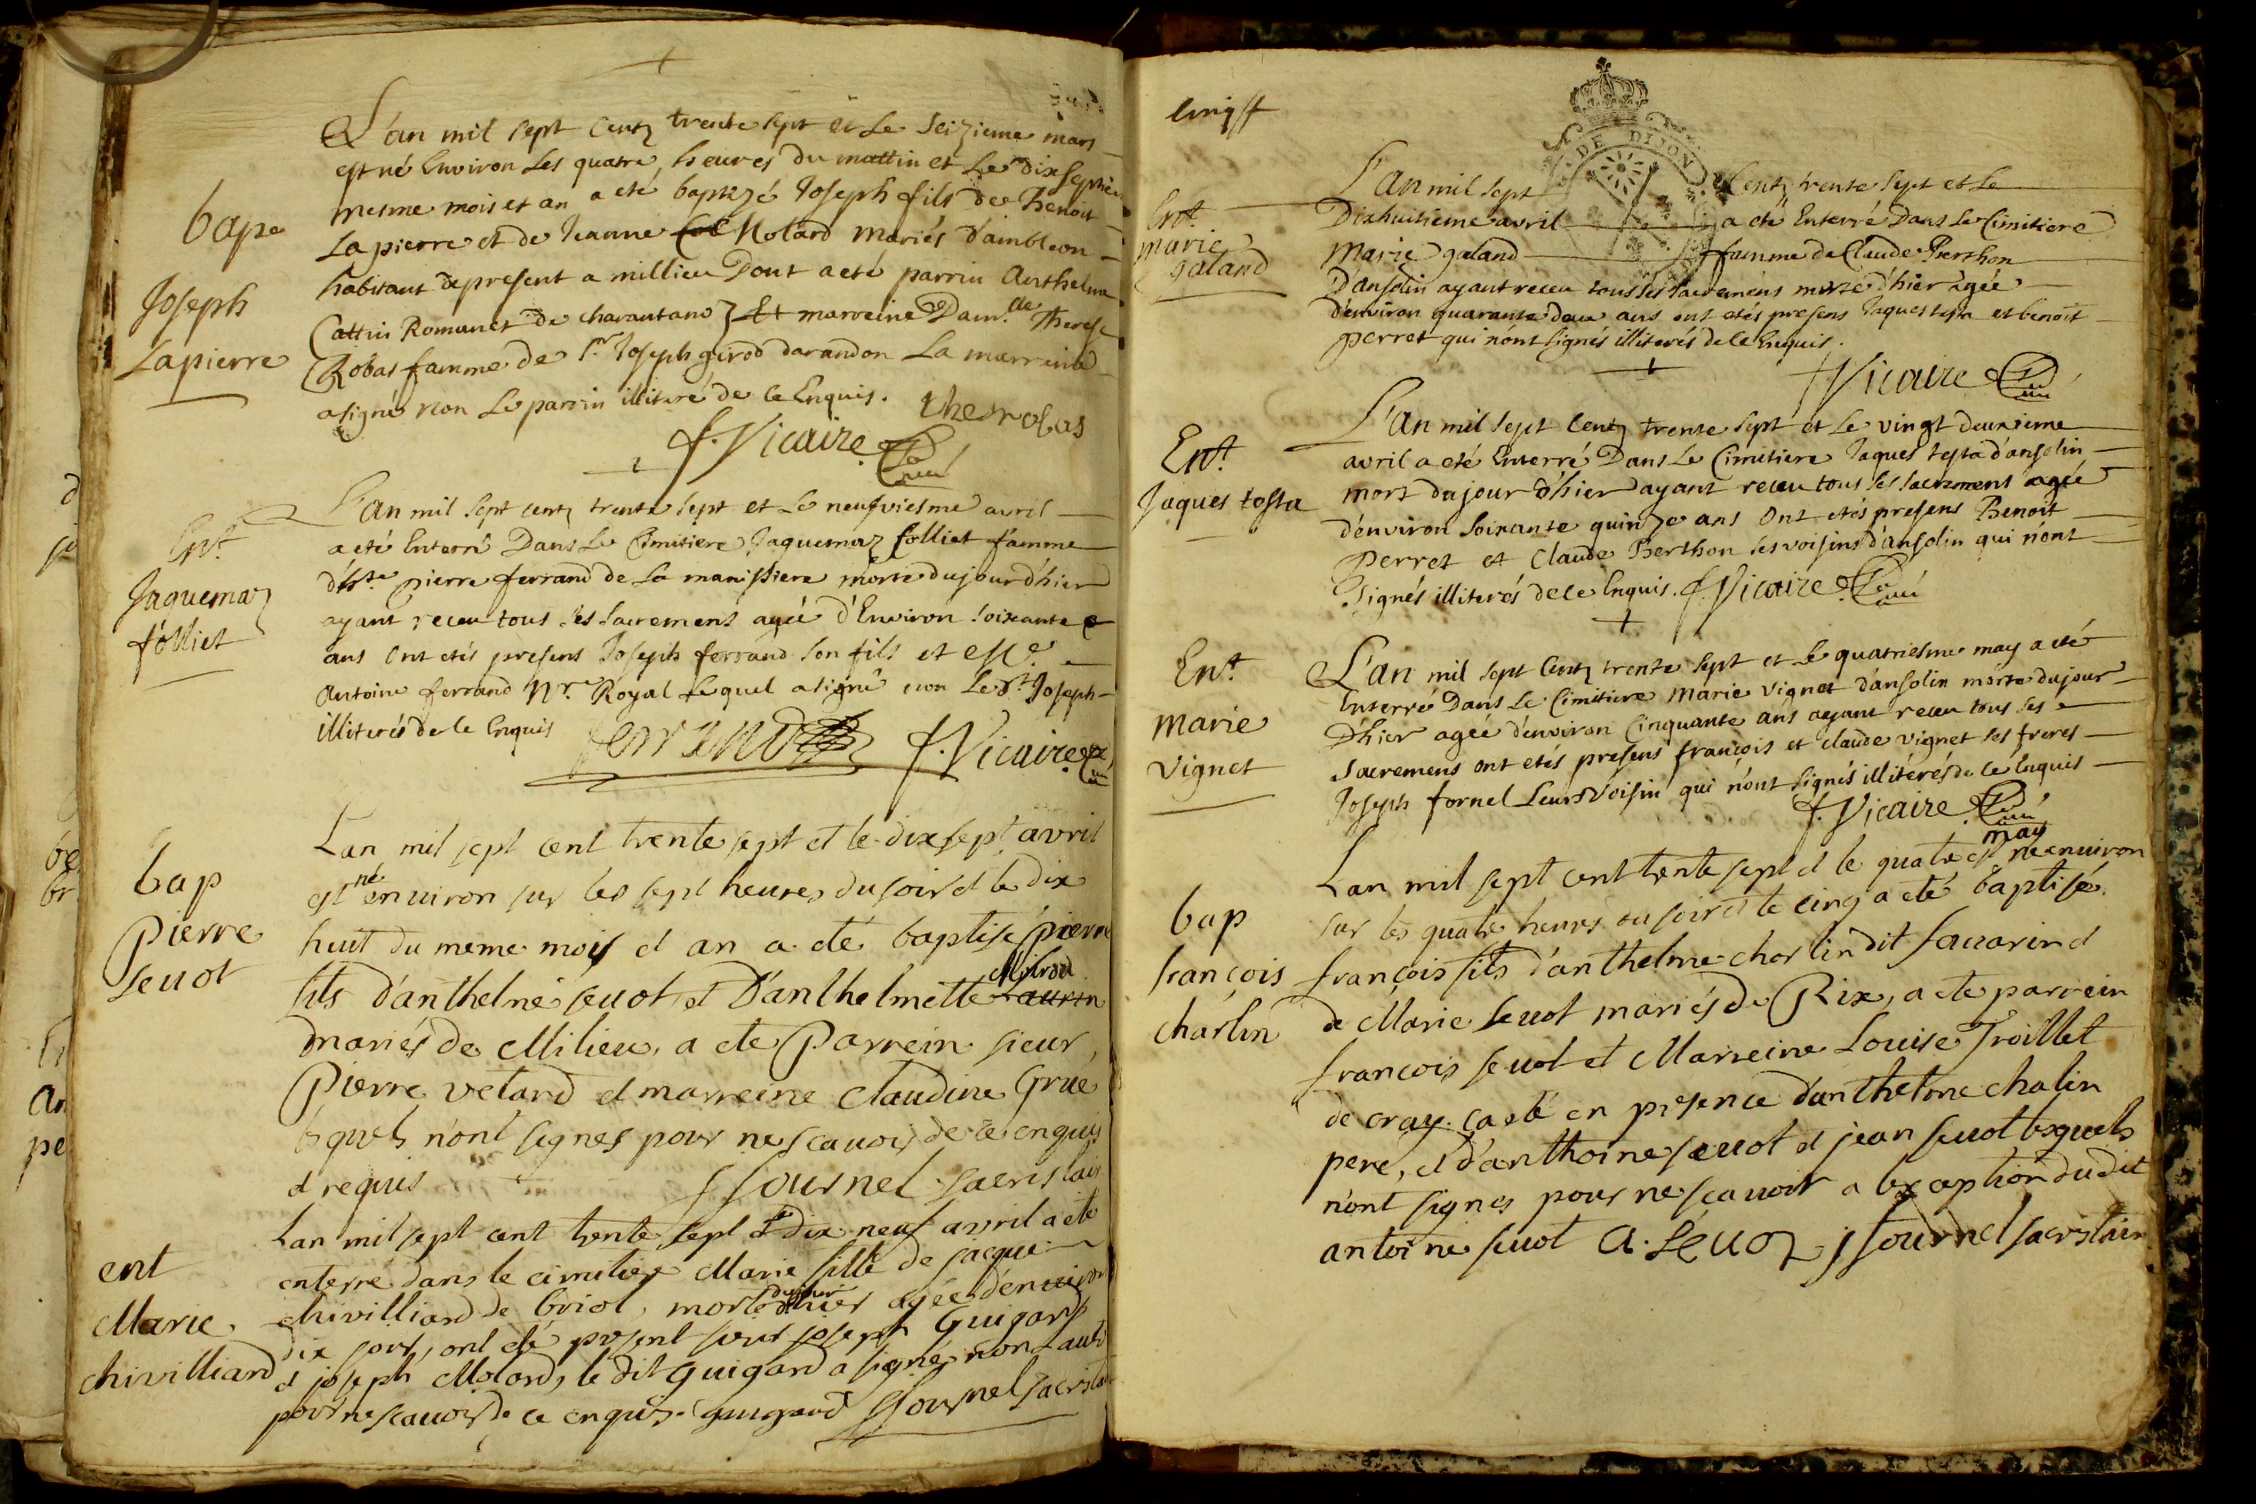 bap
Joseph
Lapierre
L'an mil sept Centz trente sept et Le Seizieme mars
est né Environ Les quatre heures du mattin et Le dixseptie
mesme mois et an a eté baptizé Joseph fils de Benoit
La pierre et de Jeanne Molard Mariés d'ambleon
habitant de present a millieu Dont a eté parrin Anthelme
Cattin Romanet de charantano Et marreine Dam.lle Therese
Robas famme de Sr. Joseph girod darandon La marreine
a signé non Le parrin illiteré de ce Enquis. therobas
f. Vicaire Curé
Ent.
Jaquemaz
folliet
L'an mil sept centz trente sept et Le neufviesme avril
a eté Enterré Dans Le Cimitiere Jaquemaz folliet famme
d'h.te pierre ferrand de La manissiere morte du jour d'hier
ayant receu tous ses sacremens agée d'Environ Soixante
ans Ont etés presens Joseph ferrand son fils et
Antoine ferrand N.re Royal Lequel a signé non Le d.t Joseph
illiterés de ce Enquis ferrand f. Vicaire Curé
bap
Pierre
Seuot
Lan mil sept cent trente sept et le dix sept avril
est né enuiron sur les sept heures du soir et le dix
huit du meme mois et an a eté baptisé pierre
fils d'anthelme seuot et D'anthelmette
mariés de Milieu, a ete Parrein sieur
Pierre velard et marreine Claudine Grue
lesquels n'ont signes pour ne scauoir de ce enquis
et requis f fournel sacristain
ent
Marie
chivilliard
Lan mil sept cent trente sept le dix neuf avril a ete
enterré dans le cimetiere Marie fille de jacque
chivilliard de briol, morte du jour d'hier agée d'enuiron
dix jours, ont eté present sieur joseph Guigard
et joseph Molard, le dit guigard a signé non lautre
pour ne scauoir de ce enquis. guigard f fournel sacristain
DE DIJON
Ent.
Marie
galand
L'An mil sept Centz trente sept et Le
Dixhuitieme avril a eté Enterré Dans Le Cimitiere
Marie galand famme de Claude Berthon
D'ansolin ayant receu tous ses sacremens morte d'hier agée
d'environ quarante deux ans ont etés presens Jaques testa et benoit
perret qui n'ont signés illiterés de ce Enquis.
f Vicaire Curé
Ent.
Jaques tosta
L'An mil sept Centz trente sept et Le vingt deuxieme
avril a eté Enterré Dans Le Cimitiere Jaques testa d'ansolin
mort du jour d'hier ayant receu tous ses sacremens agée
d'environ Soixante quinze ans Ont etés presens Benoit
Perret et Claude Berthon ses voisins d'ansolin qui n'ont
Signés illiterés de ce Enquis. f. Vicaire Curé
Ent.
Marie
Vignet
L'An mil sept Centz trente sept et Le quatriesme may a eté
Enterré Dans Le Cimitiere Marie Vignet d'ansolin morte du jour
D'hier agée d'environ Cinquante ans ayant receu tous ses
Sacremens ont etés presens françois et claude vignet ses freres
Joseph fornel Leurs Voisin qui n'ont signés illiterés de ce Enquis
f. Vicaire Curé
bap
françois
charlin
Lan mil sept cent trente sept et le quatre may est né enuiron
sur les quatre heures du soir et le cinq a eté baptisé
françois fils d'anthelme charlin dit sauarin et
de Marie Seuot mariés de Rix, a ete parrein
francois seuot et Marreine Louise Troillet
de cray. ca eté en presence d'anthelme chalin
pere, et d'anthoine seuot et jean seuot lesquels
n'ont signes pour ne scauoir a lexception dudit
antoine seuot A. Seuoz f fournel sacristain